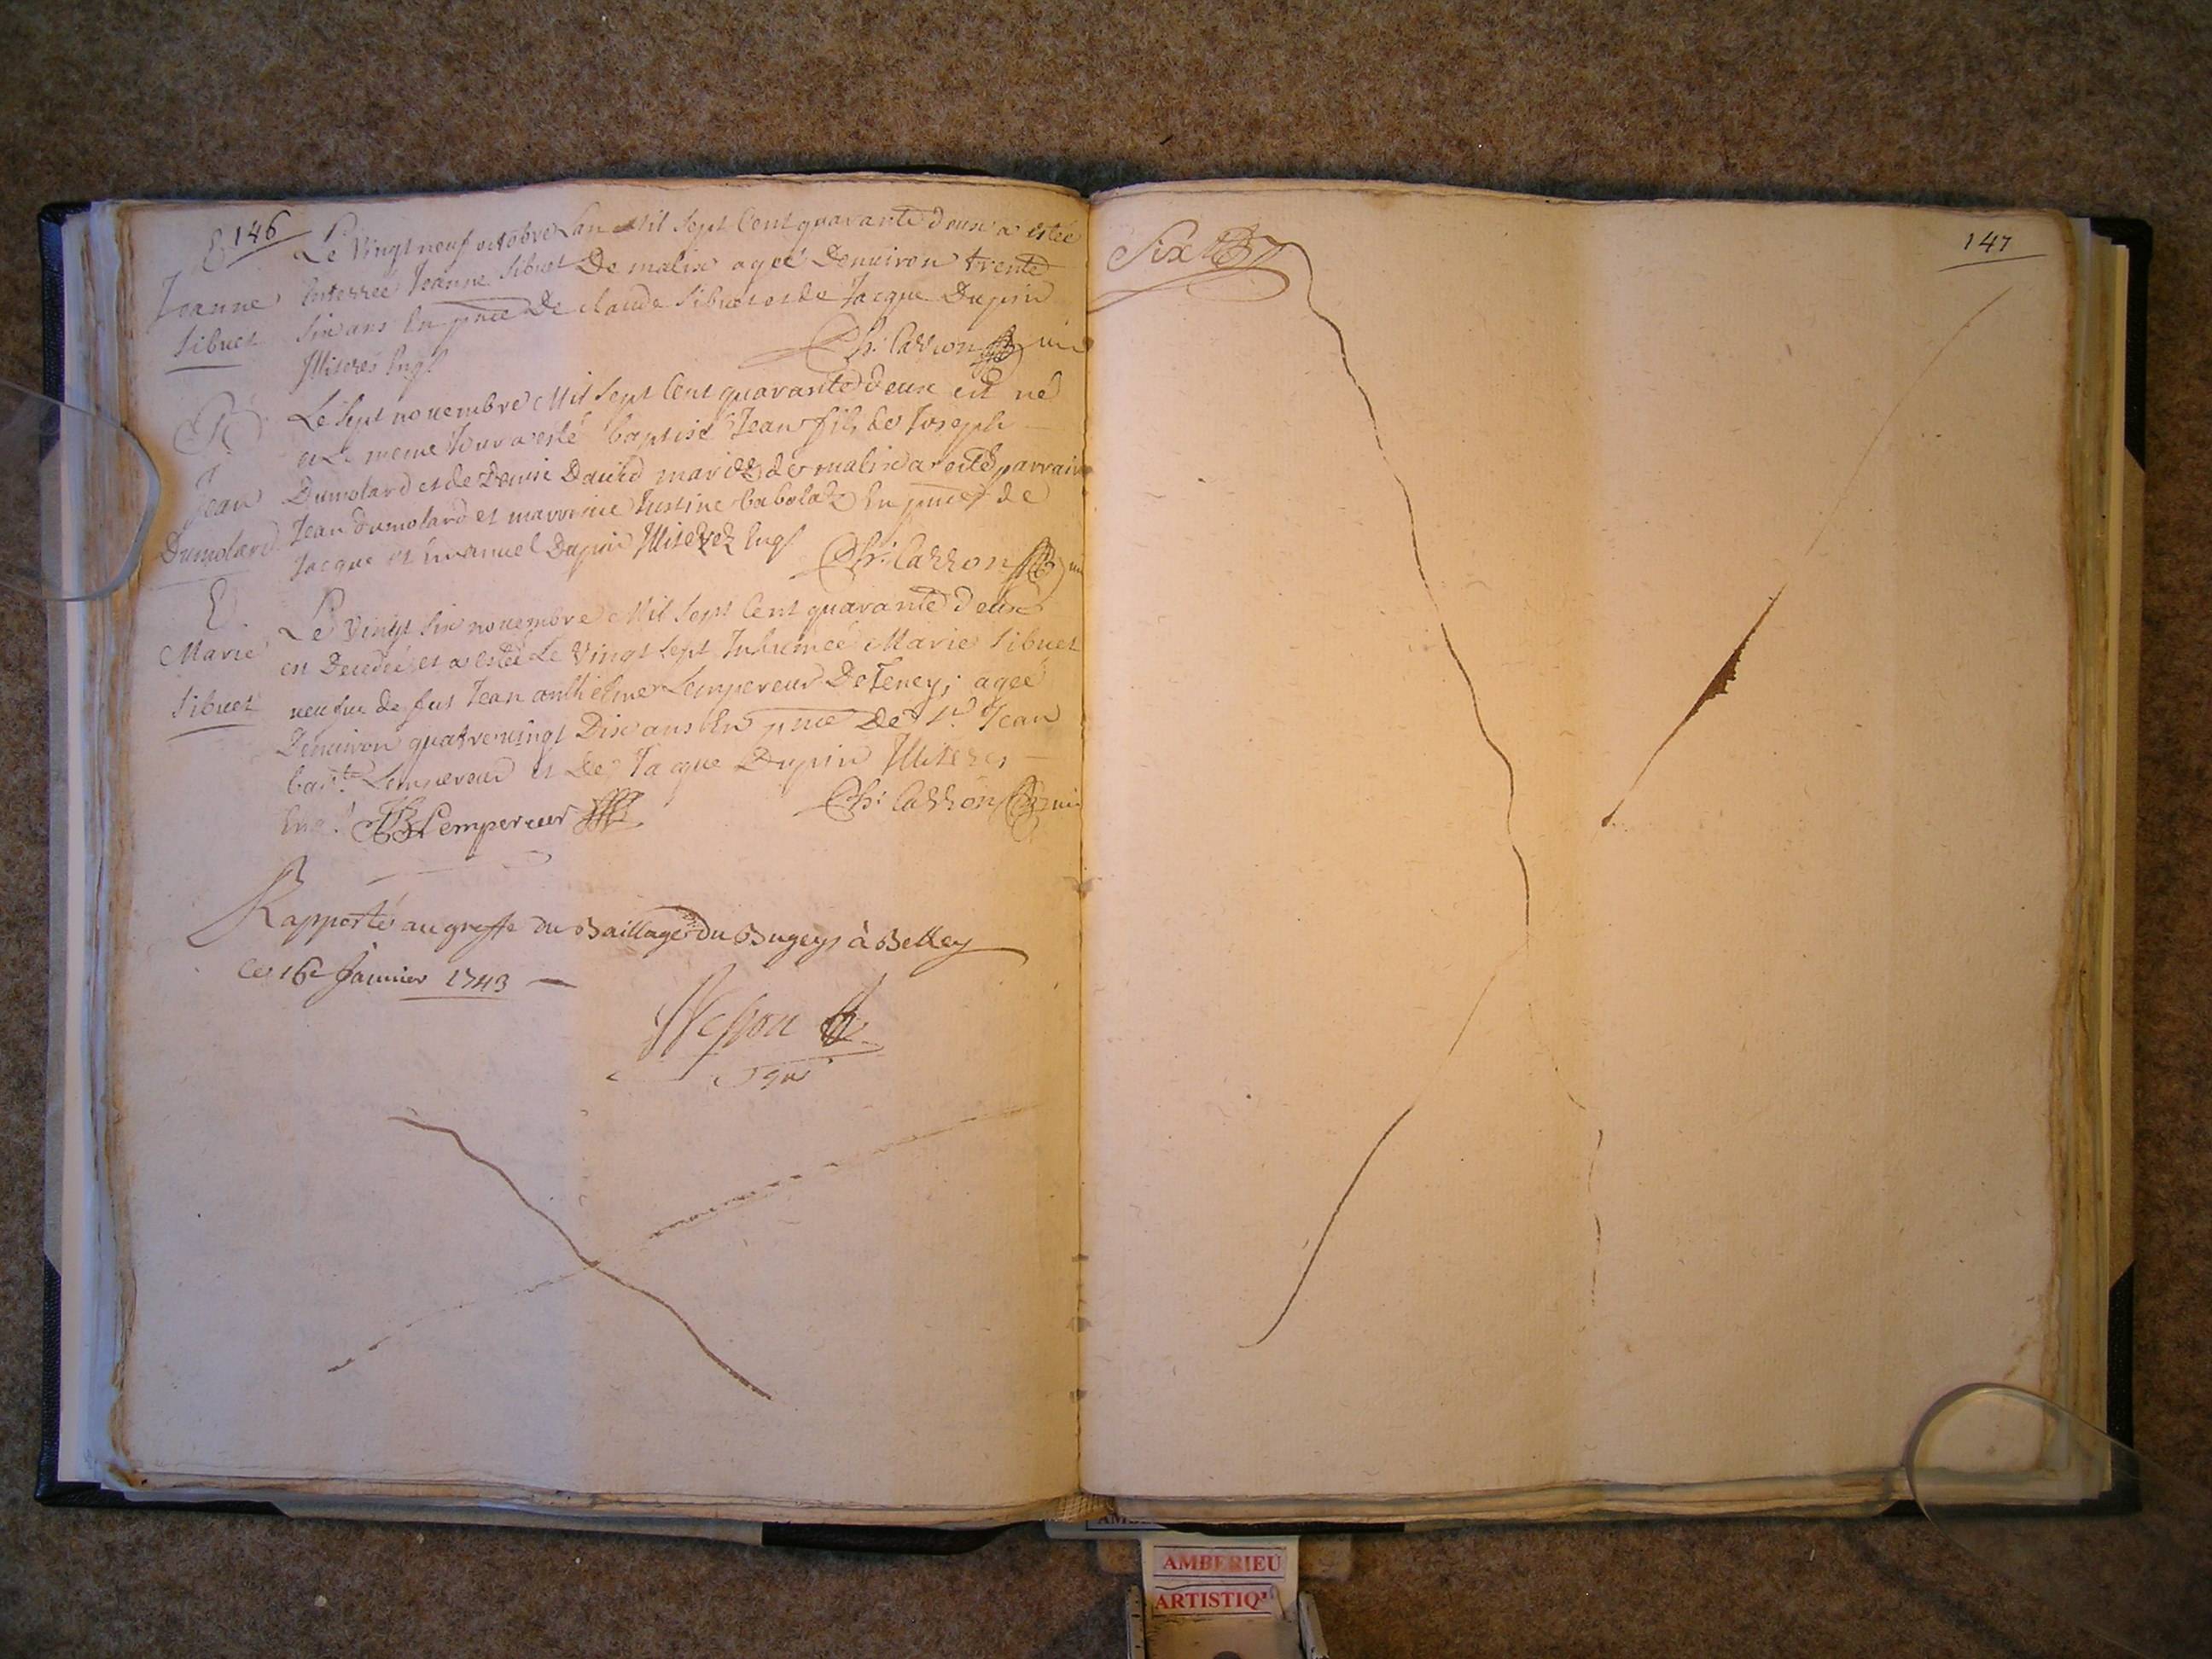 146
E.
Joanne
Sibuet
Le Vingt neuf octobre Lan Mil Sept Cent quarante deux a estée
Enterreé Joanne Sibuet De malix ageé Denuiron trente
Six ans En pnce De claude Sibuet et de Jacque Dupin
Illiterés Enqs
Ch: Carron
B.
Jean
Dumolard
Le Sept nouembre Mil Sept Cent quarante deux est né
et Le meme Jour a esté baptisé Jean fils de Joseph
Dumolard et de Denise Dauid mariez de malix a esté parrain
Jean dumolard et marraine Justine babolaz En pnce de
Jacque et Emanuel Dupin Illiterez Enqs
Ch: Carron
E.
Marie
Sibuet
Le Vingt Six nouembre Mil Sept Cent quarante deux
est Decedeé et a esteé Le Vingt Sept Inhumeé Marie Sibuet
veufue de fut Jean anthelme Lempereur De Teney; ageé
Denuiron quatre vingt Dix ans En pnce De Sr Jean
bapte Lempereur et De Jacque Dupin Illiteres
Enqs JB Lempereur
Ch: Carron
Rapporté au greffe du Baillage du Bugey à Belley
Ce 16e Januier 1743
Six
147
AMBERIEU
ARTISTIQ